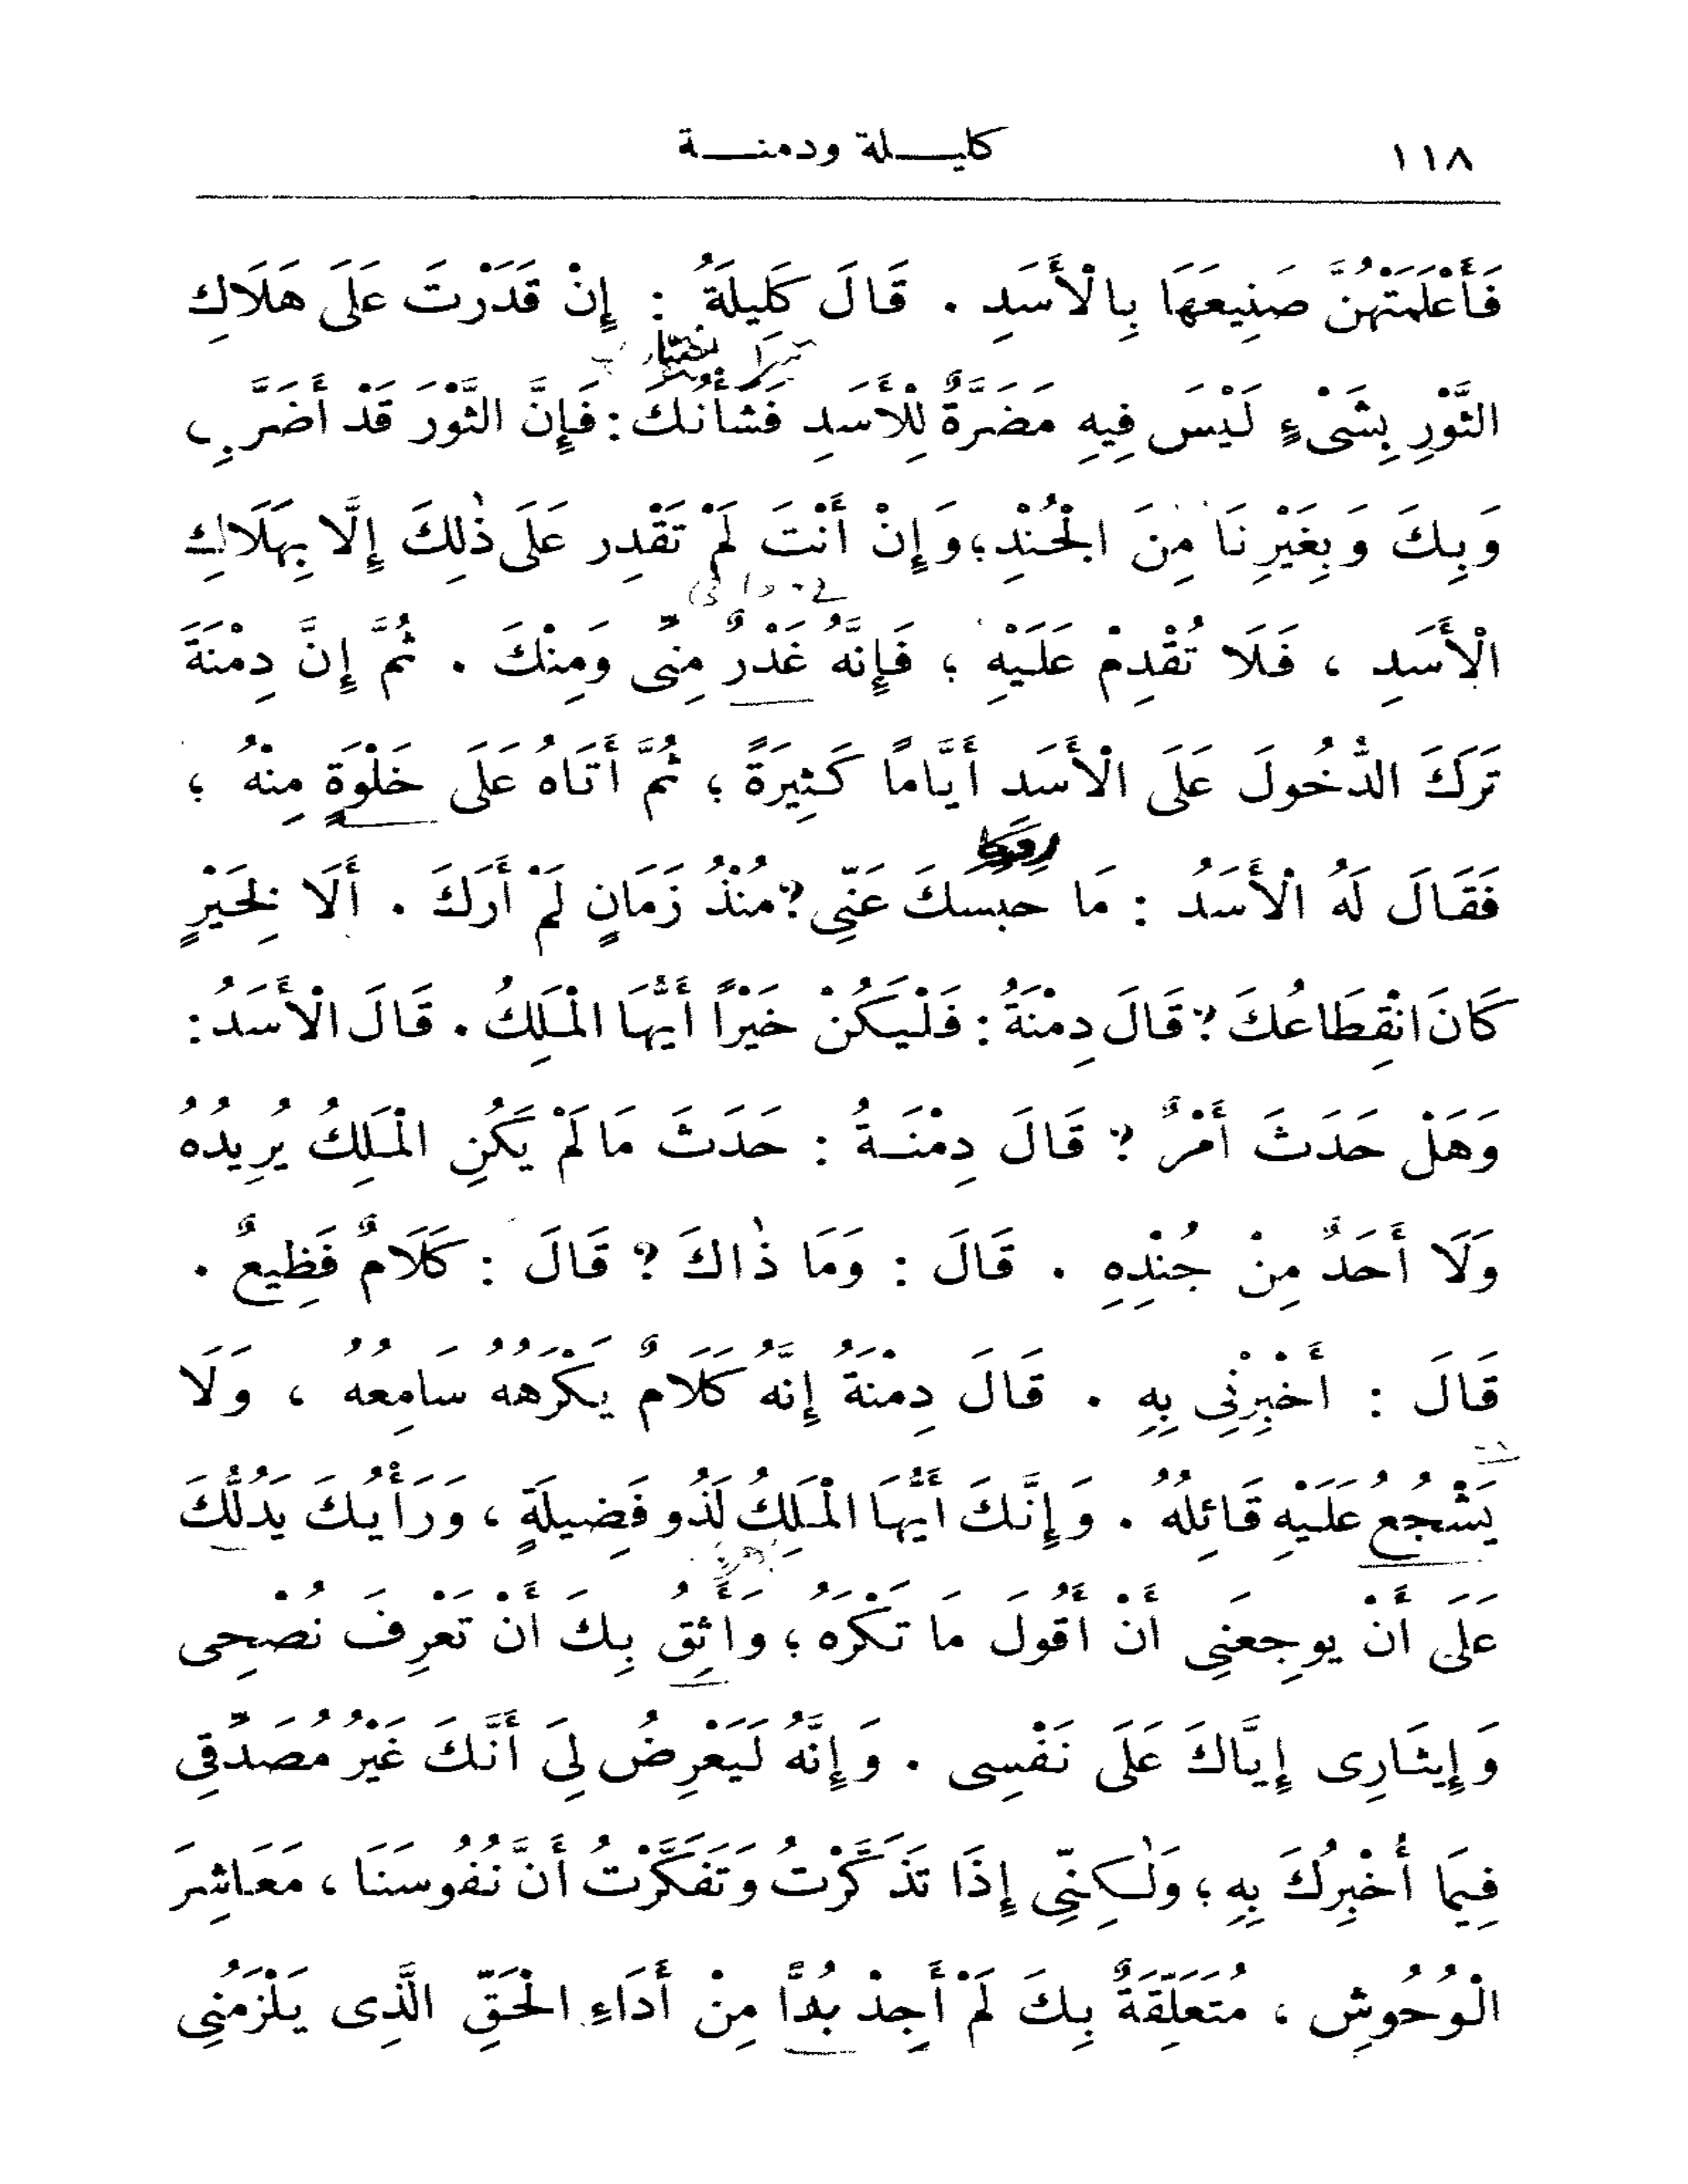 ١١٨
كليـــلة ودمنـــة
فَأَعْلَمَتْهُنَّ صَنِيعَهَا بِالْأَسَدِ . قَالَ كَلِيلَةُ : إِنْ قَدَرْتَ عَلَى هَلَاكِ
الثَّوْرِ بِشَىْءٍ لَيْسَ فِيهِ مَضَرَّةٌ لِلْأَسَدِ فَشَأْنُكَ : فَإِنَّ الثَّوْرَ قَدْ أَضَرَّ بِى
وَبِكَ وَبِغَيْرِنَا مِنَ الْجُنْدِ ؛ وَإِنْ أَنْتَ لَمْ تَقْدِرْ عَلَى ذٰلِكَ إِلَّا بِهَلَاكِ
الْأَسَدِ ، فَلَا تُقْدِمْ عَلَيْهِ ؛ فَإِنَّهُ غَدْرٌ مِنِّى وَمِنْكَ . ثُمَّ إِنَّ دِمْنَةَ
تَرَكَ الدُّخُولَ عَلَى الْأَسَدِ أَيَّامًا كَثِيرَةً ؛ ثُمَّ أَتَاهُ عَلَى خَلْوَةٍ مِنْهُ ؛
فَقَالَ لَهُ الْأَسَدُ : مَا حَبَسَكَ عَنِّى ؟ مُنْذُ زَمَانٍ لَمْ أَرَكَ . أَلَا لِخَيْرٍ
كَانَ انْقِطَاعُكَ ؟ قَالَ دِمْنَةُ : فَلْيَكُنْ خَيْرًا أَيُّهَا الْمَلِكُ . قَالَ الْأَسَدُ :
وَهَلْ حَدَثَ أَمْرٌ ؟ قَالَ دِمْنَـةُ : حَدَثَ مَا لَمْ يَكُنِ الْمَلِكُ يُرِيدُهُ
وَلَا أَحَدٌ مِنْ جُنْدِهِ . قَالَ : وَمَا ذٰاكَ ؟ قَالَ : كَلَامٌ فَظِيعٌ .
قَالَ : أَخْبِرْنِى بِهِ . قَالَ دِمْنَةُ إِنَّهُ كَلَامٌ يَكْرَهُهُ سَامِعُهُ ، وَلَا
يَشْجُعُ عَلَيْهِ قَائِلُهُ . وَإِنَّكَ أَيُّهَا الْمَلِكُ لَذُو فَضِيلَةٍ ، وَرَأْيُكَ يَدُلُّكَ
عَلَى أَنْ يُوجِعَنِى أَنْ أَقُولَ مَا تَكْرَهُ ؛ وَأَثِقُ بِكَ أَنْ تَعْرِفَ نُصْحِى
وَإِيثَارِى إِيَّاكَ عَلَى نَفْسِى . وَإِنَّهُ لَيَعْرِضُ لِىَ أَنَّكَ غَيْرُ مُصَدِّقِى
فِيمَا أُخْبِرُكَ بِهِ ؛ وَلٰكِنِّى إِذَا تَذَكَّرْتُ وَتَفَكَّرْتُ أَنَّ نُفُوسَنَا ، مَعَاشِرَ
الْوُحُوشِ ، مُتَعَلِّقَةٌ بِكَ لَمْ أَجِدْ بُدًّا مِنْ أَدَاءِ الْحَقِّ الَّذِى يَلْزَمُنِى